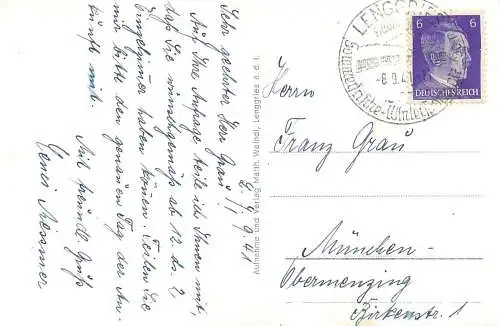 L. 7/9 41
Sehr geehrter Herr Grau!
Auf Ihre Anfrage teile ich Ihnen mit,
daß Sie wunschgemäß ab 12. ds. 2
haben können. Teilen Sie
mir bitte den genauen Tag der An-
kunft mit.
Mit freundl. Gruß
Aufnahme und Verlag Math. Weindl, Lenggries a. d. I.
LENGGRIES
-8.9.41
Sommerfrische-Wintersport
6
6
DEUTSCHES REICH
Herrn
Franz Grau
München-
Obermenzing
Birkenstr. 1